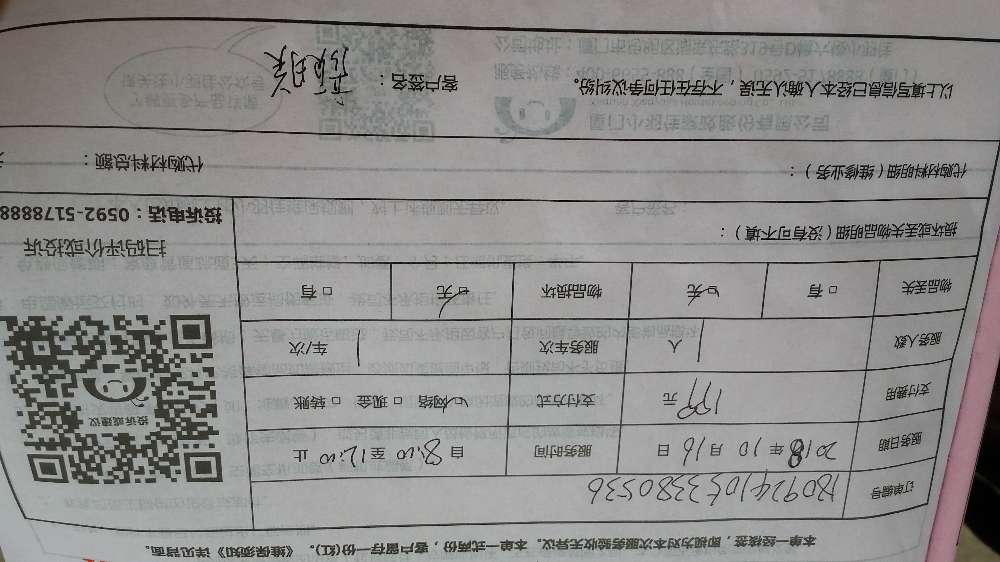 本单一经接签，即视为对本次服务验收无异议。本单一式两份，客户留存一份(红)。《维保须知》详见背面。
订单编号 1809241053380536
服务日期 2018年10月16日 服务时间 自8:00至12:00止
支付费用 199元 支付方式 ☑网络 □现金 □转账
服务人数 1人 服务车次 1车/次
物品丢失 □有 ☑无 物品损坏 ☑无 □有
投诉或建议
扫码评价或投诉
投诉电话：0592-5178888
损坏或丢失物品明细（没有可不填）：
代购材料明细（维修业务）： 代购材料总额：
以上填写信息已经本人确认无误，不存在任何争议纠纷。 客户签名：